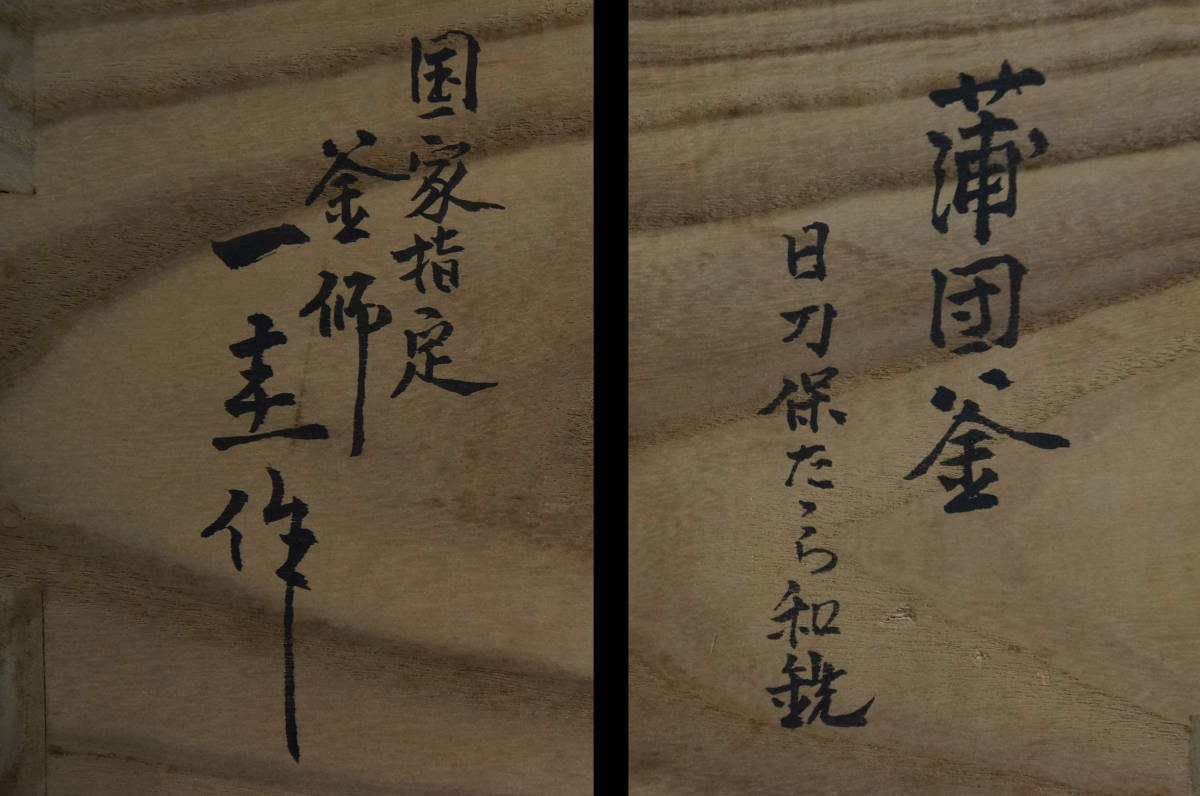 蒲団釜
日刀保たゝら和銑
国家指定
釜師
一圭作